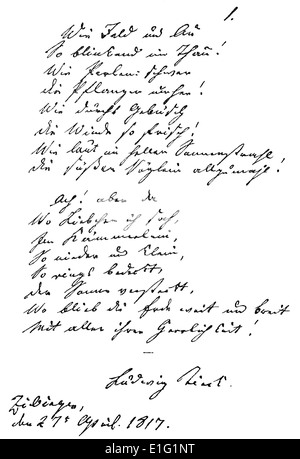 1.
Wie Feld und Au
So blinkend im Thau!
Wie Perlenschwer
die Pflanzen umher!
Wie durchs Gebüsch
die Winde so frisch!
Wie laut im hellen Sonnenstrahl,
die süßen Vöglein allzumahl!
Ach! aber da
Wo Liebchen ich sah,
Im Kämmerlein,
So nieder und klein,
So rings bedeckt,
der Sonne versteckt,
Wo blieb die Erde weit und breit
Mit aller ihrer Herrlichkeit!
Ludwig Tieck.
Zibingen,
den 27t April. 1817.
alamy
E1G1NT